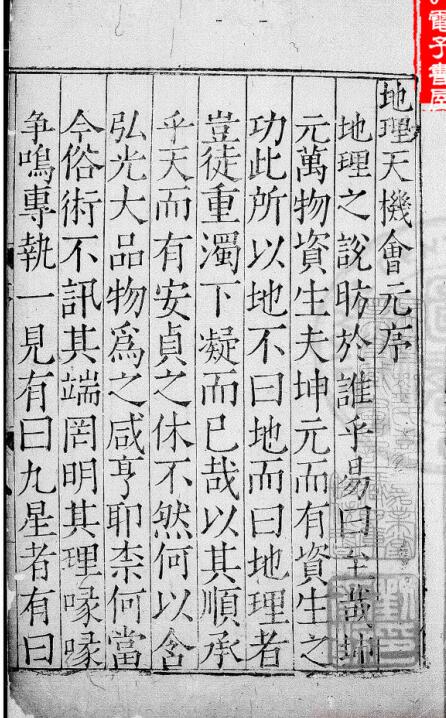 地理天機會元序
地理之說昉於誰乎易曰至哉坤
元萬物資生夫坤元而有資生之
功此所以地不曰地而曰地理者
豈徒重濁下凝而已哉以其順承
乎天而有安貞之休不然何以含
弘光大品物爲之咸亨耶柰何當
今俗術不訊其端罔明其理喙喙
争鳴專執一見有曰九星者有曰
電子書屋